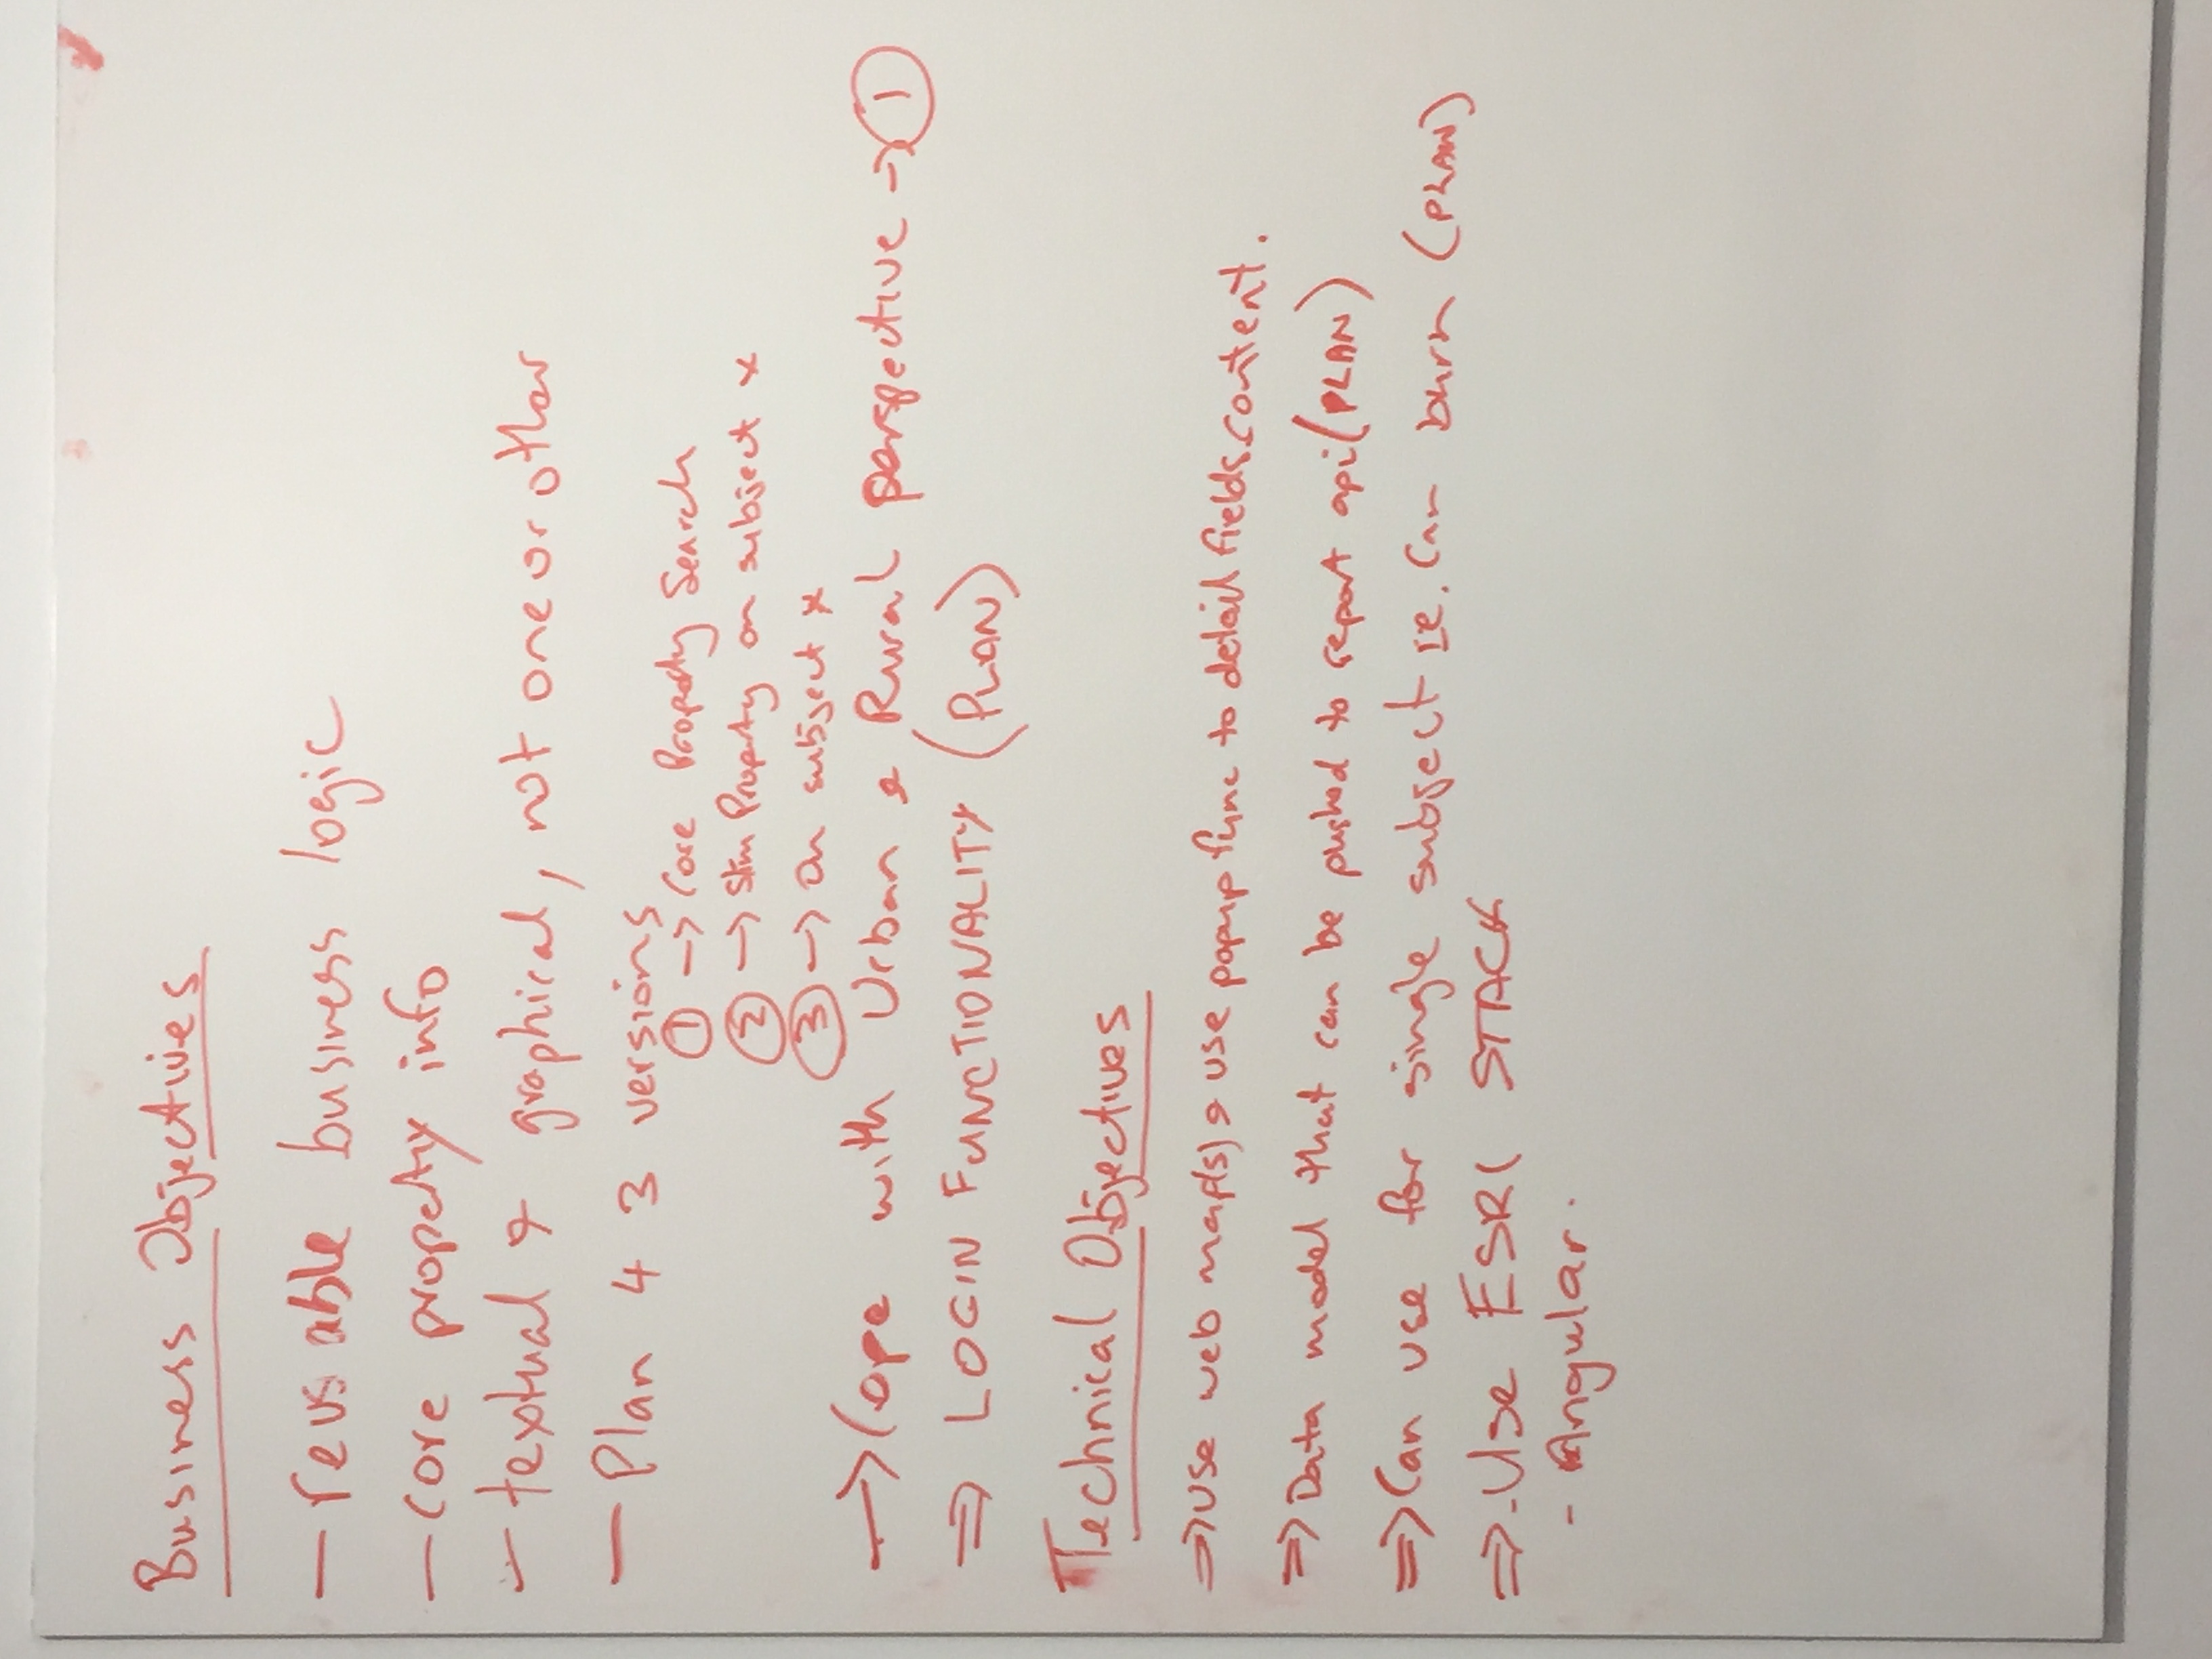 Business Objectives
- reusable business logic
- core property info
- textual & graphical, not one or other
- Plan 4 3 versions
① -> Core Property Search
② -> Slim Property on subject x
③ -> On subject x
-> Cope with Urban & Rural perspective -> ①
=> LOGIN FUNCTIONALITY (PLAN)
Technical Objectives
=> Use web map(s) & use popup func to detail fields content.
=> Data model that can be pushed to report api (PLAN)
=> Can use for single subject ie. Can burn (PLAN)
=> - Use ESRI STACK
- Angular.